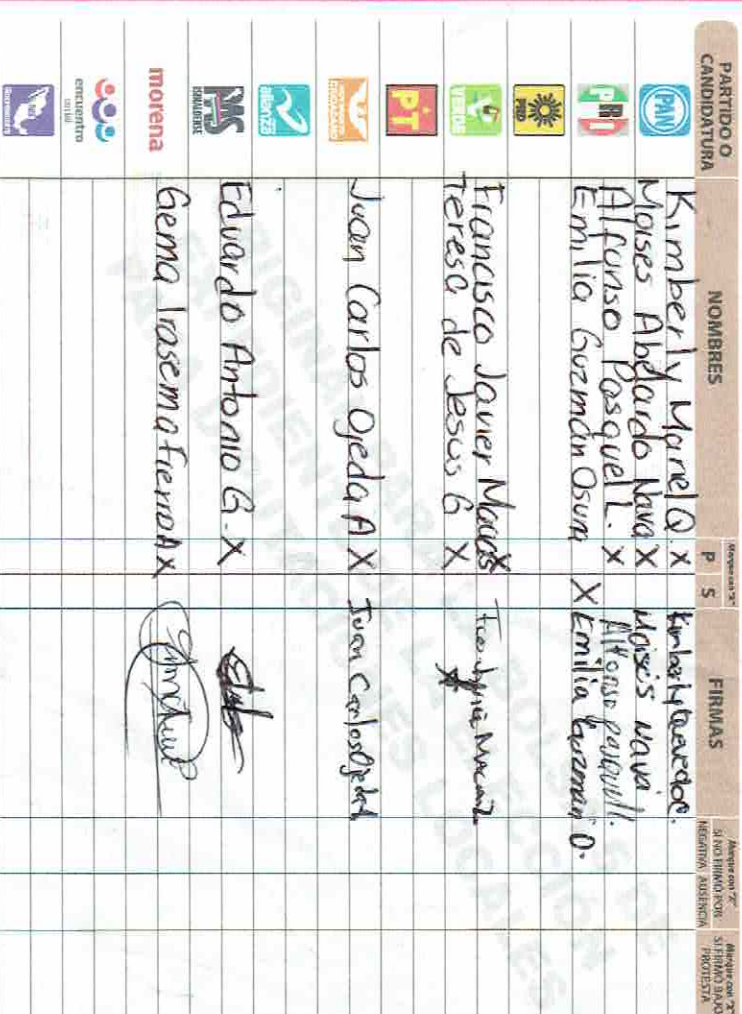 PARTIDO O CANDIDATURA
NOMBRES
Marque con "X"
P S
FIRMAS
Marque con "X" SI NO FIRMÓ POR:
NEGATIVA AUSENCIA
Marque con "X" SI FIRMÓ BAJO PROTESTA
PAN
Kimberly Mariel Q. X
Moises Abelardo Nava X Moisés Nava
PRI
Alfonso Pasquel L. X
Emilia Guzmán Osuna X Emilia Guzmán O.
PRD
VERDE
Francisco Javier Macias X
Teresa de Jesus G X
PT
MOVIMIENTO CIUDADANO
Juan Carlos Ojeda A X Juan Carlos Ojeda A
alianza
PMS
SINALOENSE
Eduardo Antonio G. X
morena
Gema Irasema Fierro A X
encuentro
social
ORIGINAL PARA LA BOLSA DE
EXPEDIENTE DE LA ELECCIÓN
PARA DIPUTACIONES LOCALES